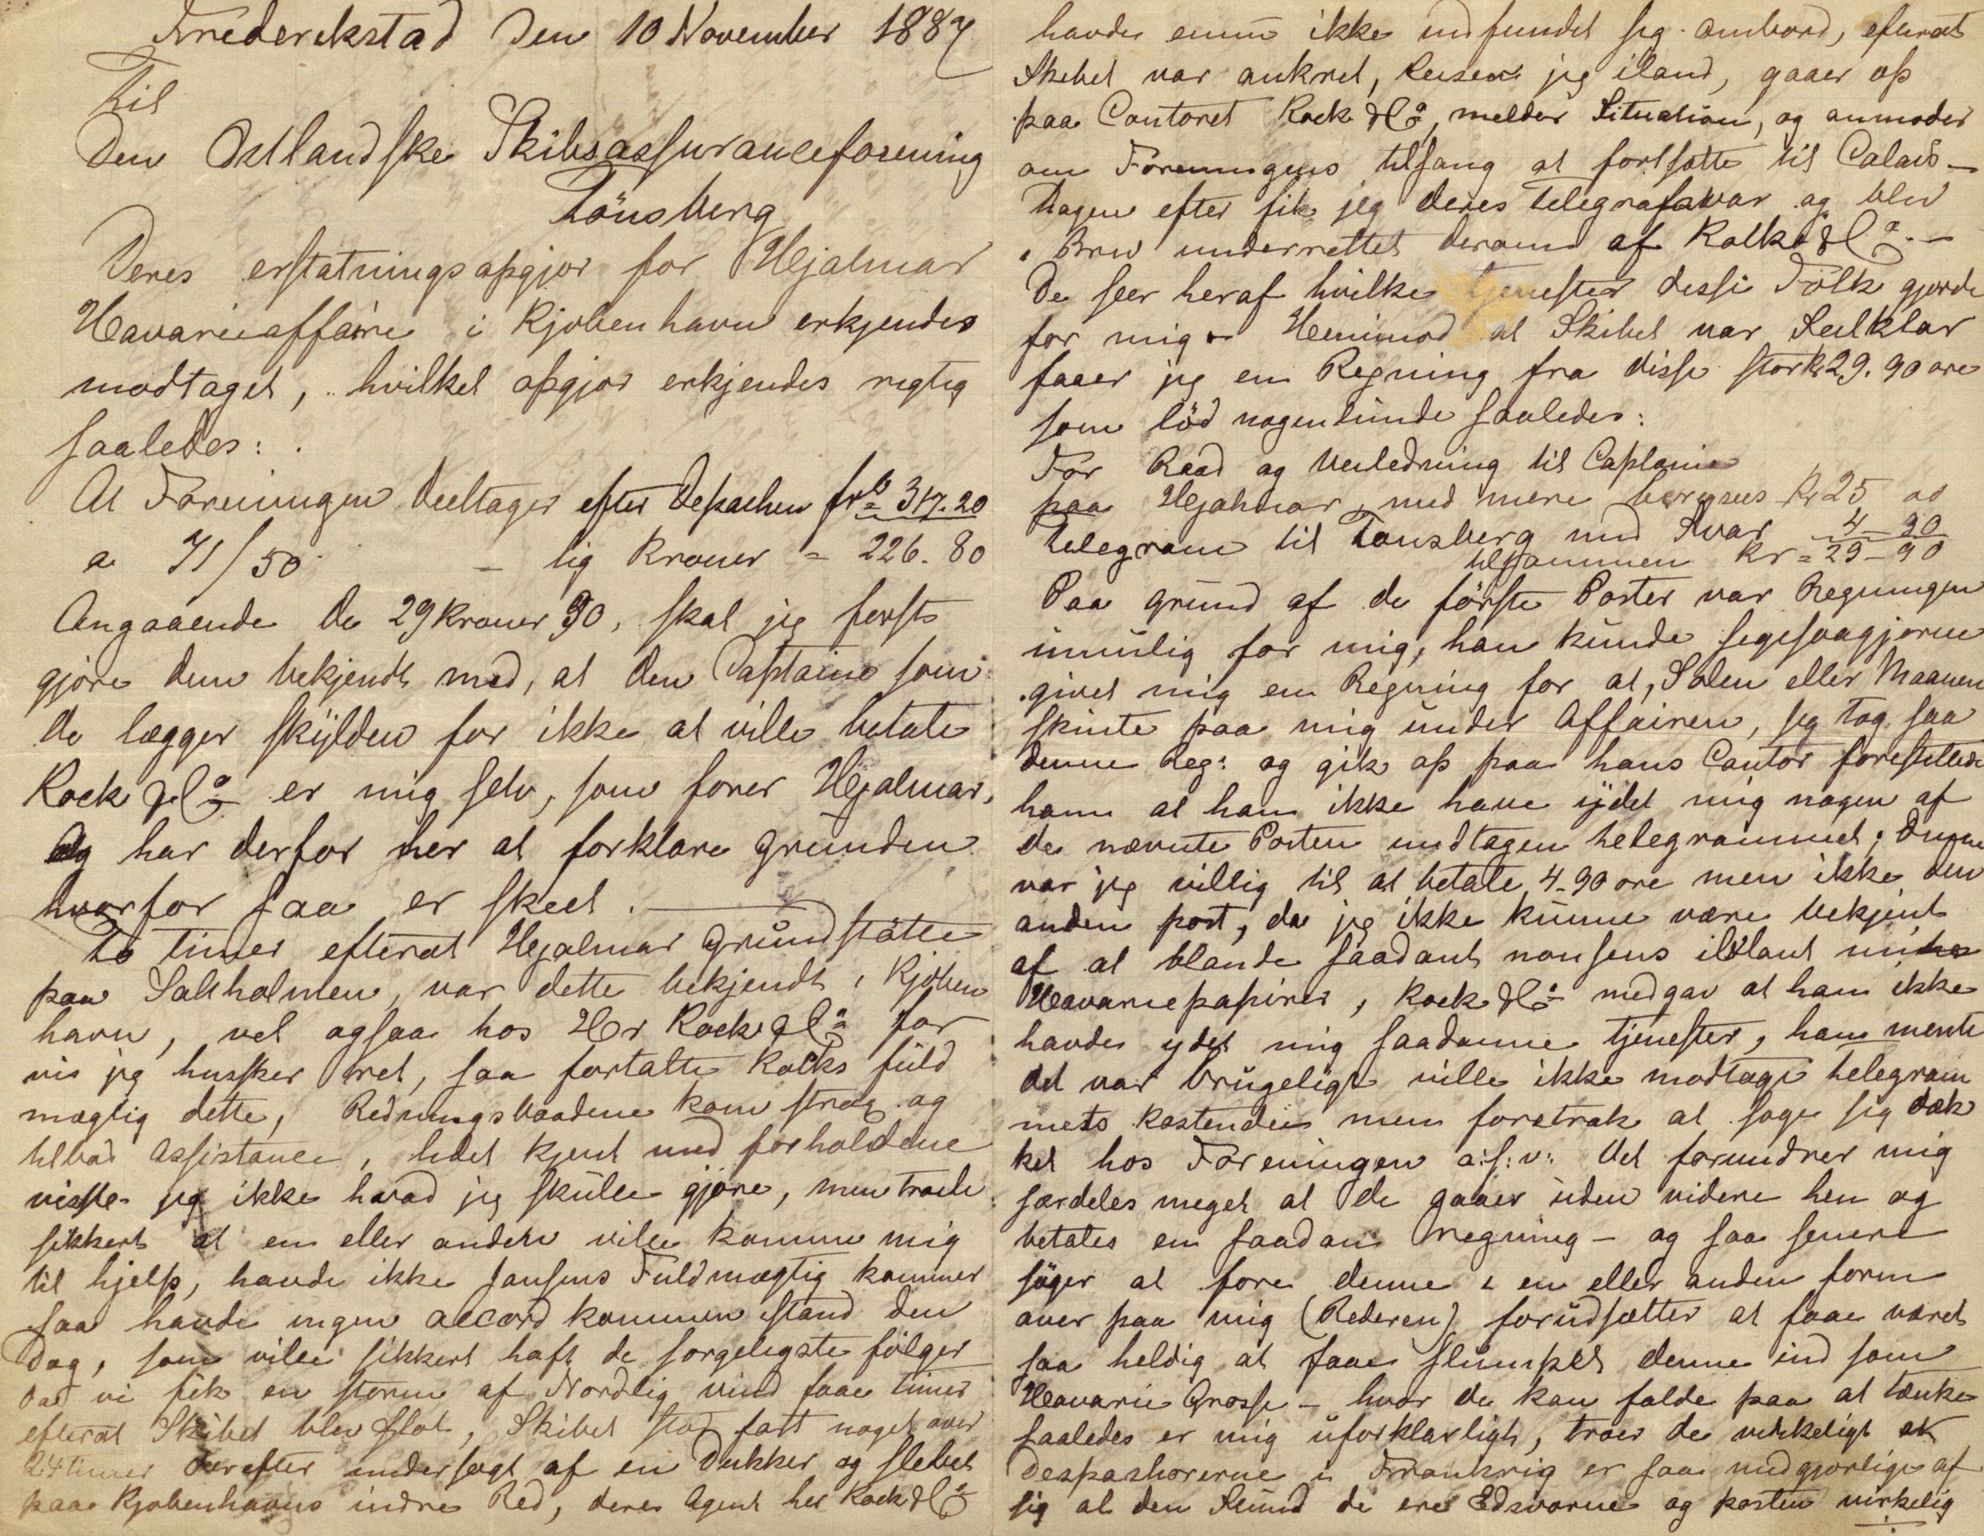 Frederekstad Den 10 November 1887
Til
Den Ostlandske Skibsassuranceforening
Tönsberg
Deres erstatningsopgjor for Hjalmar
Havarieaffaire i Kjobenhavn erkjendes
modtaget, hvilket opgjor erkjendes rigtig
saaledes:
At Foreningen deeltager efter Depachen frc = 317.20
a 71/50 - lig Kroner = 226.80
Angaaende De 29 Kroner 90, skal jeg forst
gjore dem bekjendt med, at den Captaine som
De lægger skÿlden for ikke at ville betale
Kock & Co er mig selv, som forer Hjalmar,
og har derfor her at forklare grunden
hvorfor saa er skeet.
To timer efterat Hjalmar grundstötte
paa Saltholmen, var dette bekjendt i Kjöben
havn, vel ogsaa hos Hr Kock & Co for
vis jeg husker ret, saa fortalte Kocks fuld
mægtig dette, Redningsbaadene kom strax og
tilbød assistance, lidet kjent med forholdene
visste jeg ikke hvad jeg skulle gjöre, men troede
sikkert at en eller anden ville komme mig
til hjelp, havde ikke Jansens Fuldmægtig kommet
saa havde ingen accord kommen istand den
Dag, som ville sikkert haft de sorgeligste følger
da vi fik en storm af Nordlig vind faae timer
efterat Skibet blev flot, Skibet stod fast noget over
24 timer derefter undersøgt af en Dykker og slebet
paa Kjobenhavns indre Red, deres Agent her Kock & Co
havde ennu ikke indfundet sig ombord, efterat
Skibet var ankret, Reiser jeg iland, gaaer op
paa Contoret Kock & Co, melder Situation, og anmoder
om Foreningens tilsang at fortsætte til Calais -
Dagen efter fik jeg deres Telegrafsvar og blev
i Brev underrettet derom af Kolk & Co. -
De seer heraf hvilke tjenester disse Folk gjorde
for mig - Henimod at Skibet var Seilklar
faaer jeg en Regning fra disse stor kr 29.90 ore
som löd nogenlunde saaledes:
For Raad og Veiledning til Captaine
paa Hjalmar med mere beregnes Kr 25 "
Telegram til Tonsberg med Svar 4-90
tilsammen Kr = 29-90
Paa grund af de förste Poster var Regningen
umulig for mig, han kunde ligesaagjerne
givet mig en Regning for at, Solen eller Maanen
skinte paa mig under Affairen, jeg tog saa
denne Reg: og gik op paa hans Contor forestillede
ham at han ikke have ÿdet mig nogen af
de nævnte Poster undtagen telegrammet; Denne
var jeg villig til at betale 4-90 ore men ikke den
anden post, da jeg ikke kunne være bekjent
af at blande saadant nonsens iblant mine
Havariepapirer, Kock & Co medgav at han ikke
havde ydet mig saadanne tjenester, han mente
det var brugeligt ville ikke modtage telegram
mets kostende men foretrak at søge sig dæk
ket hos Foreningen o:s:v: Det forundrer mig
særdeles meget at de gaaer uden videre hen og
betales en saadan regning - og saa senere
söger at fore denne i en eller anden form
over paa mig (Rederen) forudsætter at faae været
saa heldig at faae slumpet denne ind som
Havarie Grosse - hvor de kan falde paa at tænke
saaledes er mig uforklarligt, troer de virkeligt at
Despashorerne i Frankrig er saa medgjørlige af
sig at den Stund de ere Edsvorne og posten virkelig